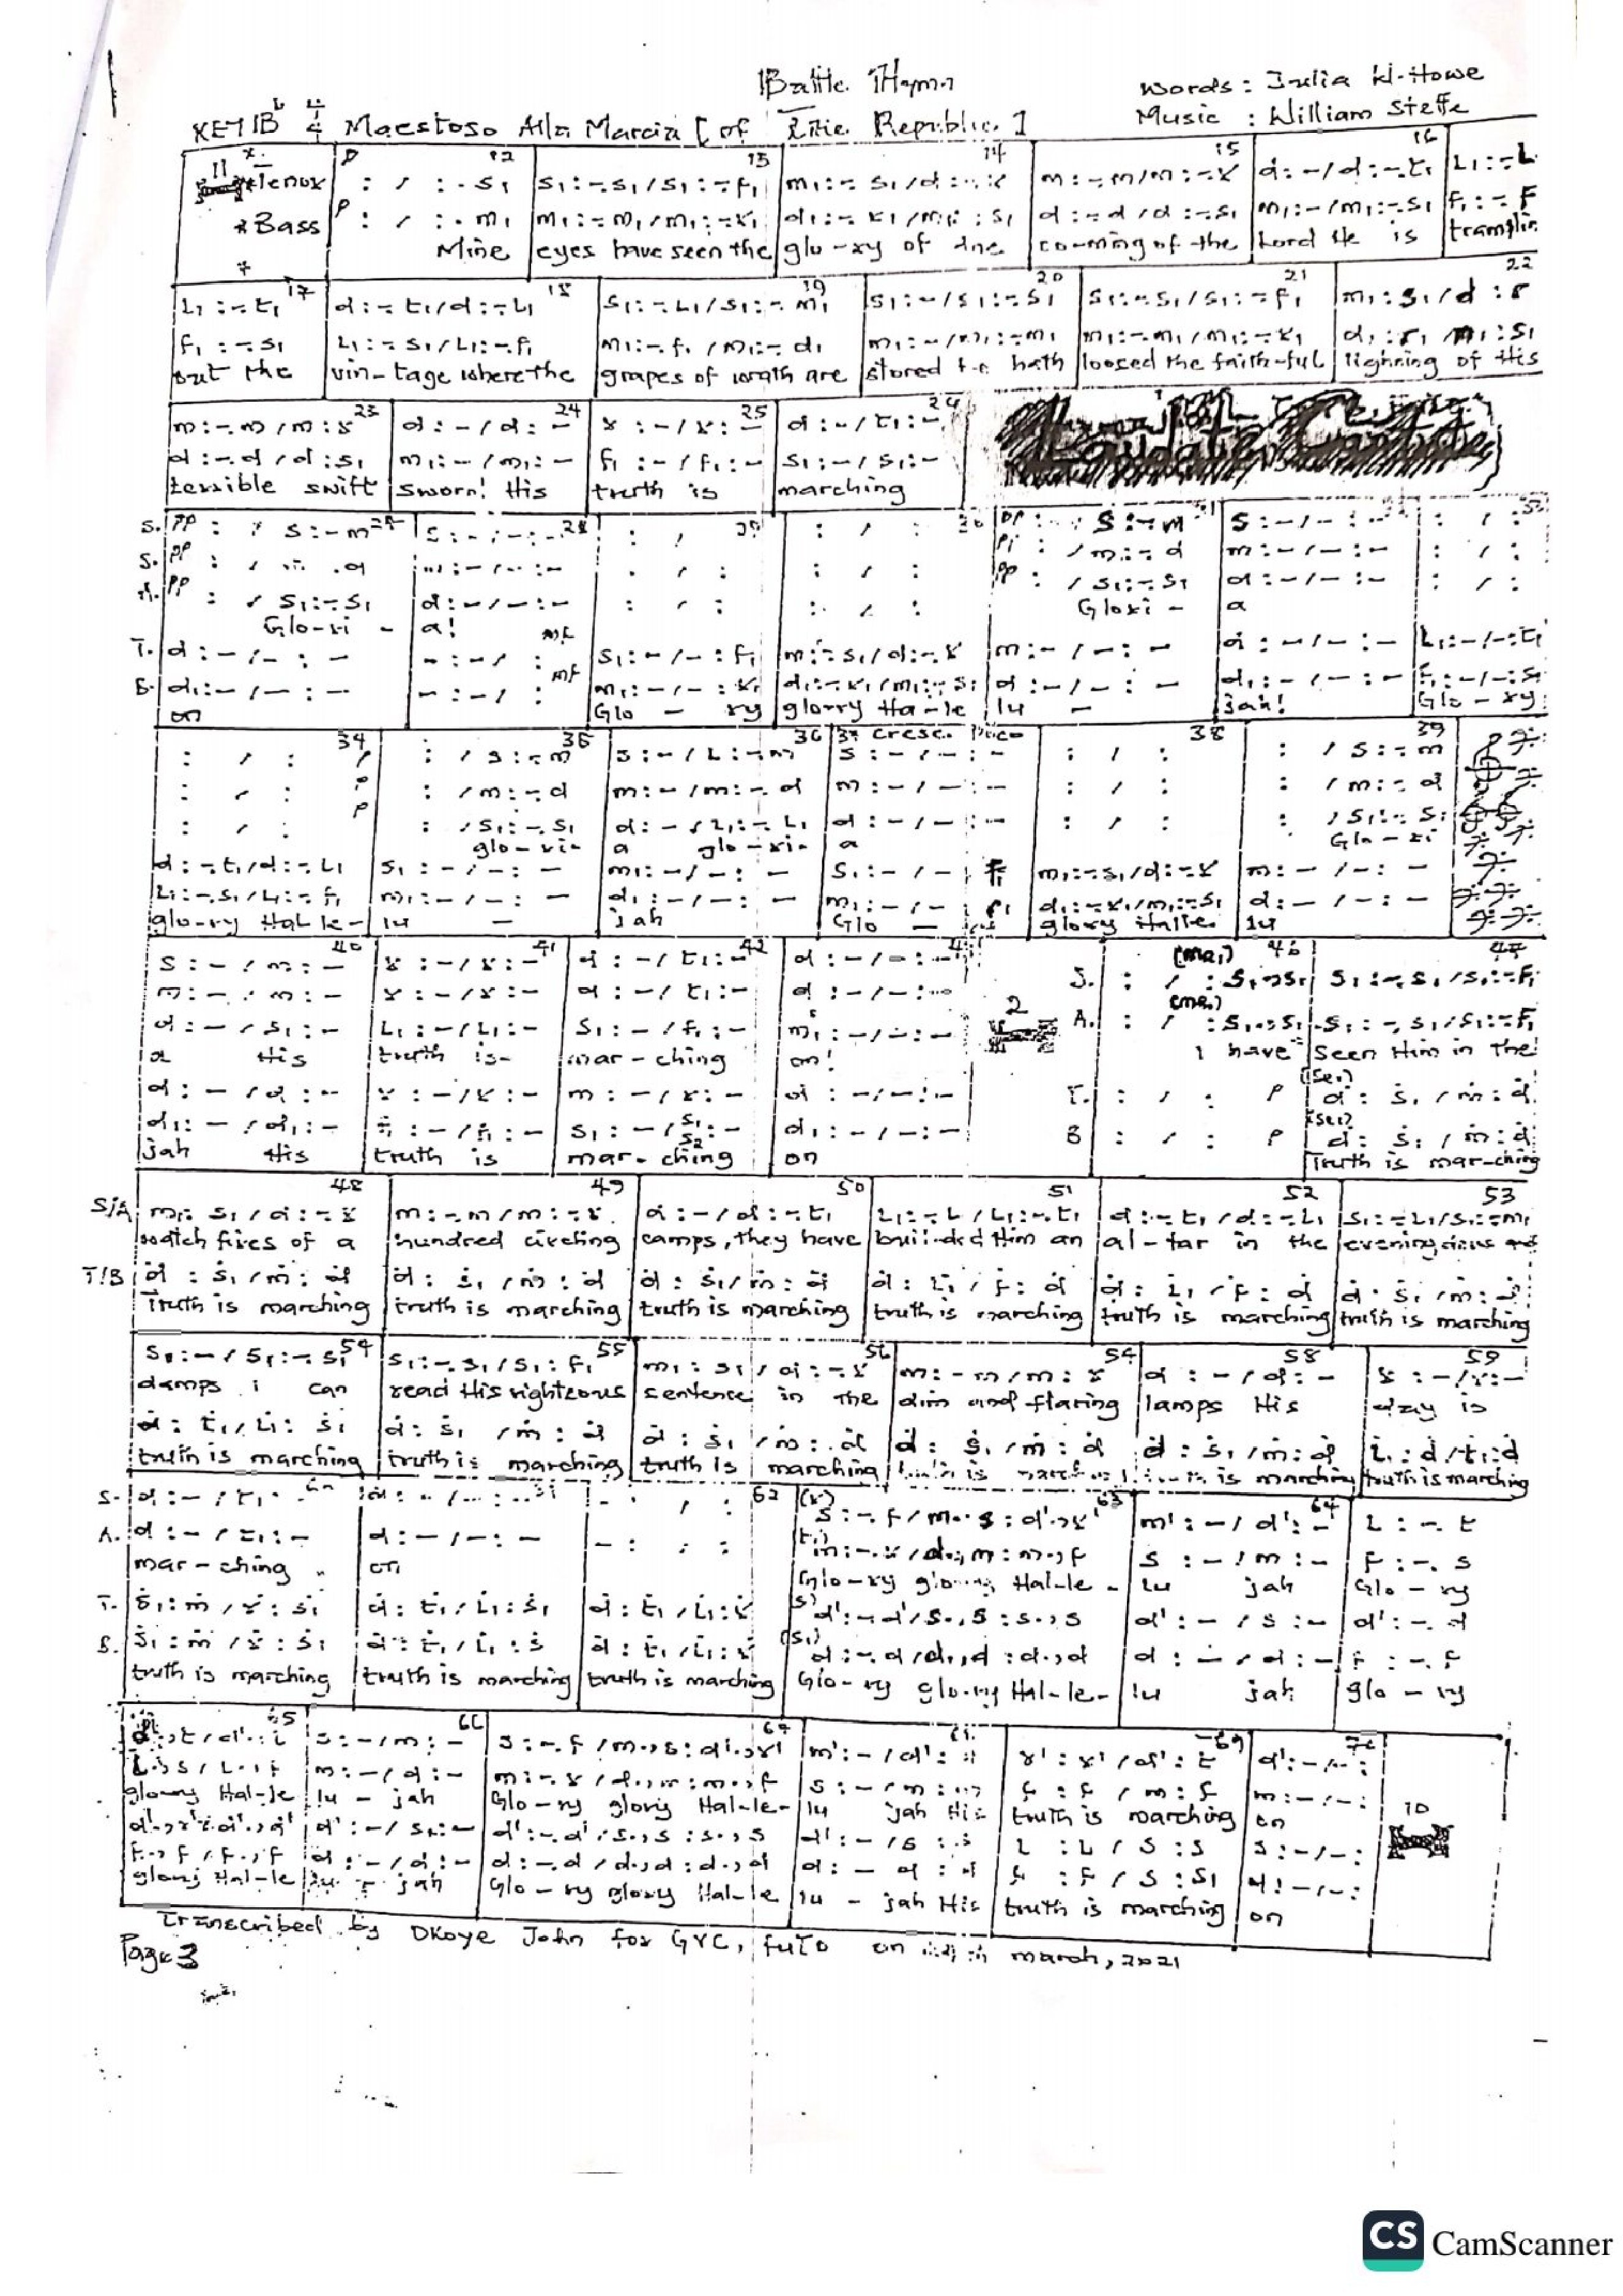 Battle Hymn
Words: Julia W. Howe
KEY Bb 4/4 Maestoso Alla Marcia [of The Republic]
Music : William Steffe
11 12 13 14 15 16
Tenor : / : . s₁ s₁:-.s₁/s₁:-.f₁ m₁:-. s₁/d:-.r m:-.m/m:-.r d:-/d:-.t₁ L₁:-.L
*Bass P : / : . m₁ m₁:-.m₁/m₁:-.r₁ d₁:-. r₁/m₁: s₁ d:-.d/d:-.s₁ m₁:-/m₁:-.s₁ f₁:-.F
Mine eyes have seen the glo-ry of the co-ming of the Lord He is tramplin
17 18 19 20 21 22
L₁:-.t₁ d:-.t₁/d:-.L₁ s₁:-.L₁/s₁:-.m₁ s₁:-/s₁:-.s₁ s₁:-.s₁/s₁:-.f₁ m₁:s₁/d:r
f₁:-.s₁ L₁:-.s₁/L₁:-.f₁ m₁:-.f₁/m₁:-.d₁ m₁:-/m₁:-.m₁ m₁:-.m₁/m₁:-.r₁ d₁:r₁/m₁:s₁
out the vin-tage where the grapes of wrath are stored hath loosed the faith-ful lighning of His
23 24 25 26
m:-.m/m:r d:-/d:- r:-/r:- d:-/t₁:-
d:-.d/d:s₁ m₁:-/m₁:- f₁:-/f₁:- s₁:-/s₁:-
terrible swift sworn! His truth is marching
S. pp : / s:-m s:-/-:- : / : : / : pp : / s:-m s:-/-:- : / :
S. pp : / m:-.d m:-/-:- : / : : / : pp : /m:-d m:-/-:- : / :
A. pp : / s₁:-.s₁ d:-/-:- : / : : / : pp : /s₁:-.s₁ d:-/-:- : / :
Glo-ri - a! Glori - a
T. d:-/-:- -:-/ : mf s₁:-/-:f₁ m₁:-.s₁/d:-.r m:-/-:- d:-/-:- L₁:-/-:t₁
B. d₁:-/-:- -:-/ : mf m₁:-/-:r₁ d₁:-.r₁/m₁:-.s₁ d:-/-:- d₁:-/-:- f₁:-/-:s₁
on Glo - ry glorry Ha-le lu - jah! Glo-ry
34 35 36 37 cresc. Poco 38 39
: / : : / s:-.m s:-/L:-.m s:-/-:- : / : : / s:-.m
: / : P : /m:-.d m:-/m:-.d m:-/-:- : / : : /m:-d
: / : P : /s₁:-.s₁ d:-/L₁:-.L₁ d:-/-:- : / : : /s₁:-.s₁
glo-ri- a glo-ri- a Glo-ri
d:-.t₁/d:-.L₁ s₁:-/-:- m₁:-/-:- s₁:-/-: f₁ m₁:-.s₁/d:-.r m:-/-:-
L₁:-.s₁/L₁:-.f₁ m₁:-/-:- d₁:-/-:- m₁:-/-: r₁ d₁:-.r₁/m₁:-.s₁ d:-/-:-
glo-ry Hal le- lu - jah Glo - glory Halle. lu
40 41 42 46 47
s:-/m:- r:-/r:- d:-/t₁:- d:-/-:- S. : / : s₁.,s₁ s₁:-.s₁/s₁:-.f₁
m:-/m:- r:-/r:- d:-/t₁:- d:-/-:- 2 A. : / : s₁.,s₁ s₁:-.s₁/s₁:-.f₁
d:-/s₁:- L₁:-/L₁:- s₁:-/f₁:- m₁:-/-:-
a His truth is- mar-ching on! I have seen Him in the
d:-/d:- r:-/r:- m:-/r:- d:-/-:- T. : / : P d:s₁/m:d
d₁:-/d₁:- f₁:-/f₁:- s₁:-/s₁:- d₁:-/-:- B : / : P d:s₁/m:d
jah His truth is mar-ching on Truth is mar-ching
48 49 50 51 52 53
S/A m₁:s₁/d:-.r m:-.m/m:-.r d:-/d:-.t₁ L₁:-.L₁/L₁:-.t₁ d:-.t₁/d:-.L₁ s₁:-.L₁/s₁:-.m₁
watch fires of a hundred circling camps, they have builded Him an al-tar in the evening
T/B d:s₁/m:d d:s₁/m:d d:s₁/m:d d:L₁/f:d d:L₁/f:d d:s₁/m:d
Truth is marching truth is marching truth is marching truth is marching truth is marching truth is marching
54 55 56 57 58 59
s₁:-/s₁:-.s₁ s₁:-.s₁/s₁:f₁ m₁:s₁/d:-.r m:-m/m:r d:-/d:- r:-/r:-
damps i can read His righteous sentence in the dim and flaring lamps His day is
d:t₁/L₁:s₁ d:s₁/m:d d:s₁/m:d d:s₁/m:d d:s₁/m:d L₁:d/t₁:d
truth is marching truth is marching truth is marching is marching truth is marching
62 63 64
S. d:-/t₁:- d:-/-:- - : / : s:-.f/m.,s:d'.,r' m':-/d':- L:-.t
A. d:-/t₁:- d:-/-:- - : : : m:-.r/d.,m:m.,f s:-/m:- F:-.s
mar-ching on Glo-ry glory Hal-le- lu jah Glo-ry
T. s₁:m/r:s₁ d:t₁/L₁:s₁ d:t₁/L₁:r d':-.d'/s.,s:s.,s d':-/s:- d':-.d
B. s₁:m/r:s₁ d:t₁/L₁:s d:t₁/L₁:r d:-.d/d.,d:d.,d d:-/d:- F:-.F
truth is marching truth is marching truth is marching Glo-ry glo-ry Hal-le- lu jah glo-ry
65 66 67 69 70
s:-/m:- s:-.f/m.,s:d'.,r' m':-/d': r':r'/d':t d':-/-:
m:-/d:- m:-.r/d.,m:m.,f s:-/m: f:f/m:f m:-/-:
glowry Hal-le lu-jah Glo-ry glory Hal-le- lu jah His truth is marching on
d':-/s:- d':-.d'/s.,s:s.,s d':-/s:s L:L/s:s s:-/-: 10
F.,F/F.,F d:-/d:- d:-.d/d.,d:d.,d d:-d:d f:f/s:s₁ d:-/-:
glory Hal-le lu - jah Glo-ry glory Hal-le lu - jah His truth is marching on
Transcribed by Okoye John for GYC, futo on march, 2021
Page 3
CS CamScanner